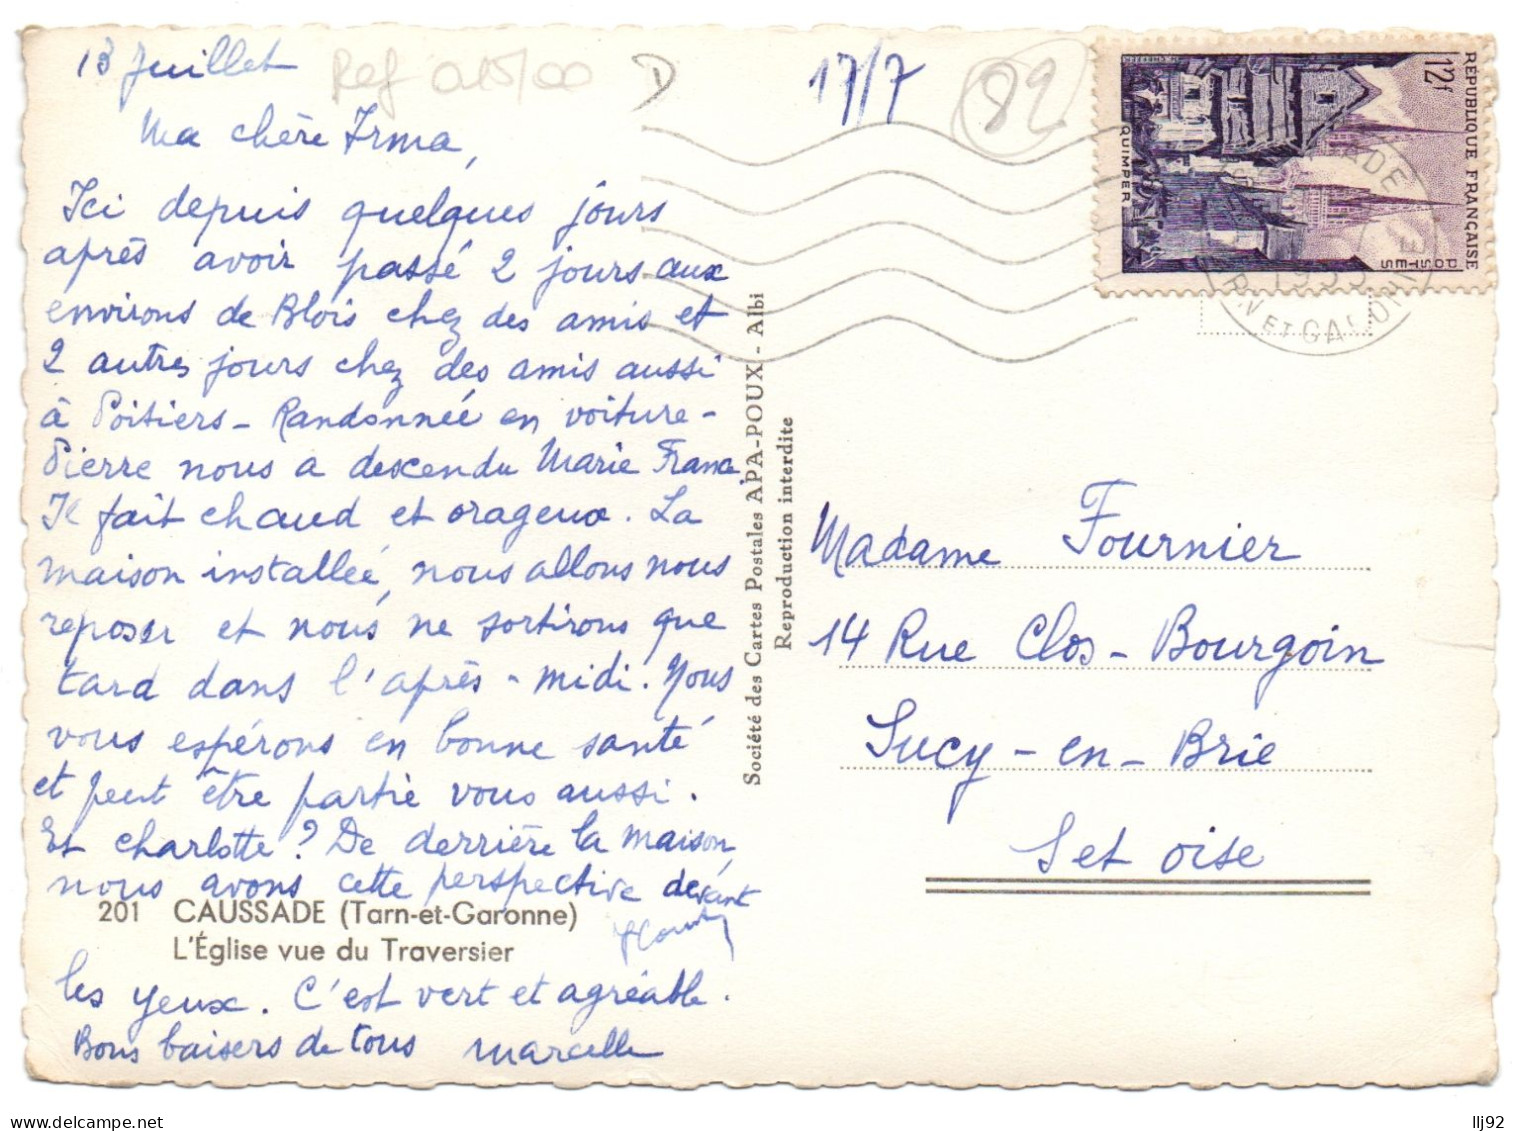 13 Juillet
Ref 015/00
D
17/7
82
Ma chère Irma,
Ici depuis quelques jours
après avoir passé 2 jours aux
environs de Blois chez des amis et
2 autres jours chez des amis aussi
à Poitiers - Randonnée en voiture -
Pierre nous a descendu Marie France
Il fait chaud et orageux. La
maison installée, nous allons nous
reposer et nous ne sortirons que
tard dans l'après-midi. Nous
vous espérons en bonne santé
et peut être partie vous aussi.
Et Charlotte? De derrière la maison,
nous avons cette perspective devant
201 CAUSSADE (Tarn-et-Garonne)
L'Église vue du Traversier
les yeux. C'est vert et agréable.
Bons baisers de tous Marcelle
Société des Cartes Postales APA-POUX - Albi
Reproduction interdite
RÉPUBLIQUE FRANÇAISE
12f
POSTES
QUIMPER
TARN ET GARONNE
Madame Fournier
14 Rue Clos-Bourgoin
Sucy-en-Brie
S et Oise
llj92